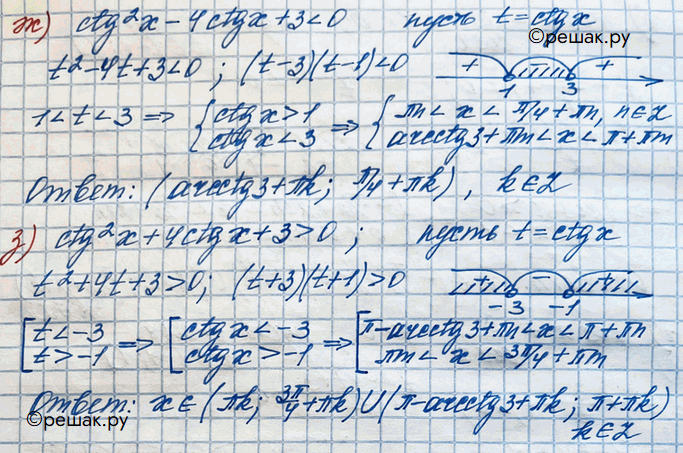 ж) ctg²x - 4ctgx + 3 < 0 пусть t = ctgx
©решак.ру
t² - 4t + 3 < 0 ; (t-3)(t-1) < 0 + - + 1 3
1 < t < 3 => { ctgx > 1 ctgx < 3 => { πn < x < π/4 + πn, n ∈ Z arcctg3 + πm < x < π + πm
Ответ: (arcctg3 + πk ; π/4 + πk) , k ∈ Z
з) ctg²x + 4ctgx + 3 > 0 ; пусть t = ctgx
t² + 4t + 3 > 0; (t+3)(t+1) > 0 + - + -3 -1
[ t < -3 t > -1 => [ ctgx < -3 ctgx > -1 => [ π - arcctg3 + πn < x < π + πn πm < x < 3π/4 + πm
Ответ: x ∈ (πk; 3π/4 + πk) ∪ (π - arcctg3 + πk ; π + πk)
©решак.ру
k ∈ Z